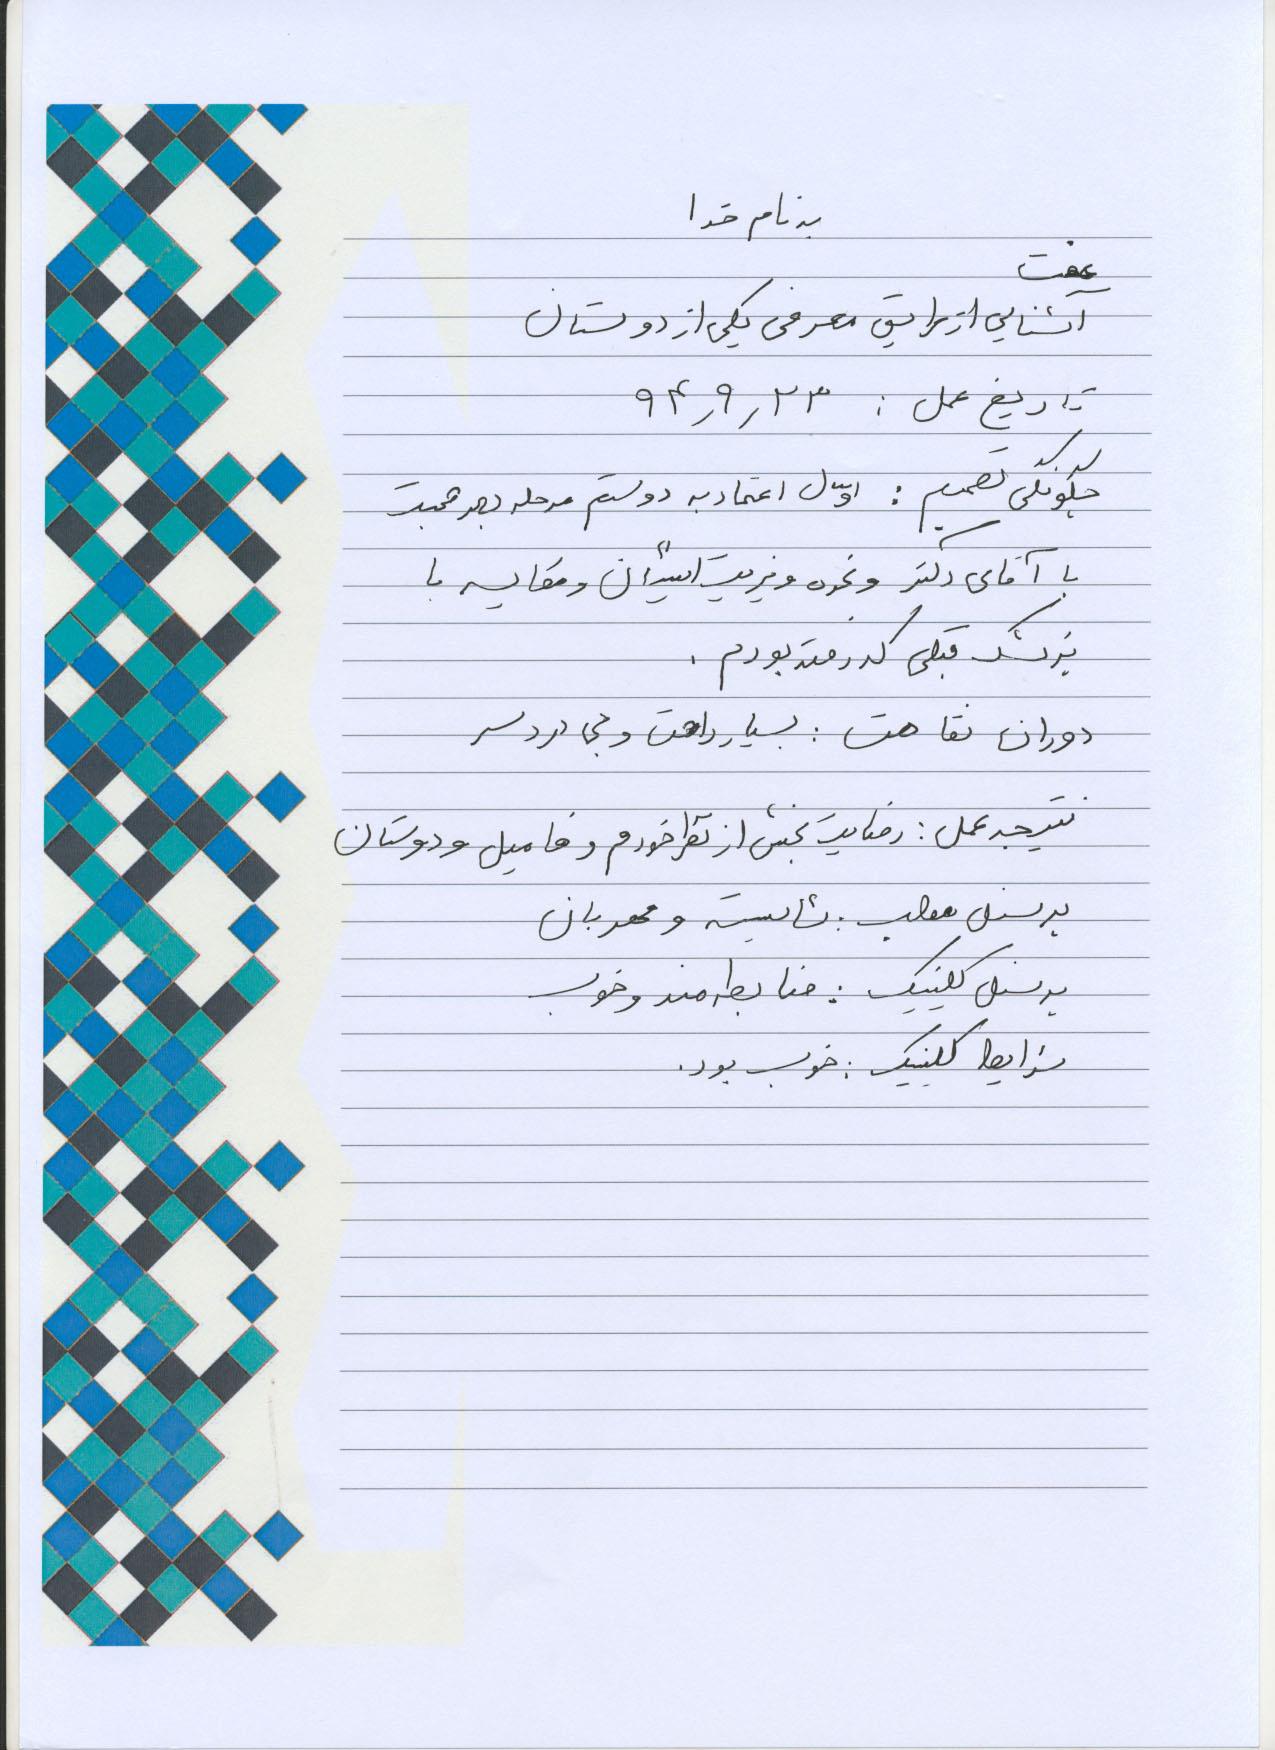 به نام خدا
آشنایی از طریق معرفی یکی از دوستان
تاریخ عمل : ۹۴٫۹٫۲۳
چگونگی تصمیم : اوّل اعتماد به دوستم مرحله بعد صحبت
با آقای دکتر و نحوه ویزیت ایشان و مقایسه با
پزشک قبلی که رفته بودم .
دوران نقاهت : بسیار راحت و بی دردسر
نتیجه عمل : رضایت بخش از نظر خودم و فامیل و دوستان
پرسنل مطب : شایسته و مهربان
پرسنل کلینیک : ضابطه مند و خوب
شرایط کلینیک : خوب بود.